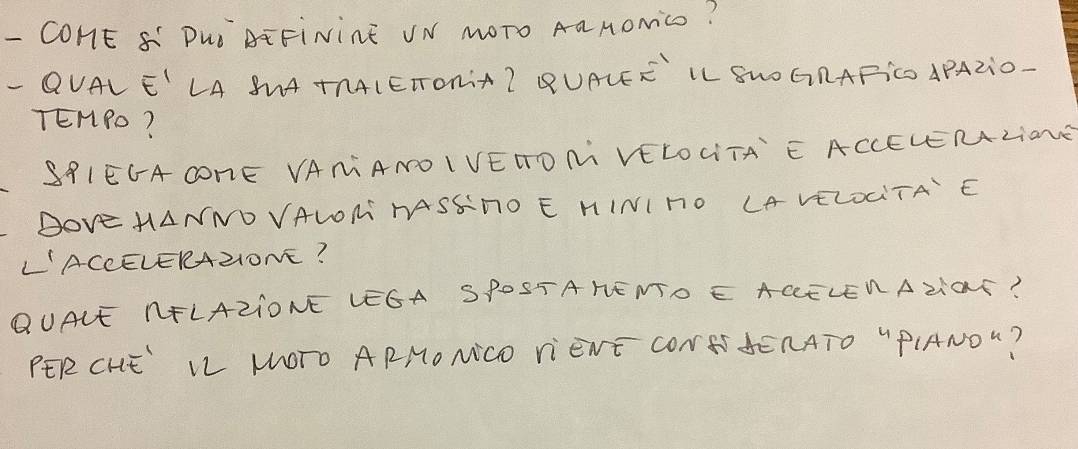 - COME SI PUÒ DEFINIRE UN MOTO ARMONICO?
- QUAL E' LA SUA TRAIETTORIA? QUALE È IL SUO GRAFICO SPAZIO-
TEMPO?
- SPIEGA COME VARIANO I VETTORI VELOCITÀ E ACCELERAZIONE
- DOVE HANNO VALORI MASSIMO E MINIMO LA VELOCITÀ E
L'ACCELERAZIONE?
QUALE RELAZIONE LEGA SPOSTAMENTO E ACCELERAZIONE?
PERCHÈ IL MOTO ARMONICO VIENE CONSIDERATO "PIANO"?